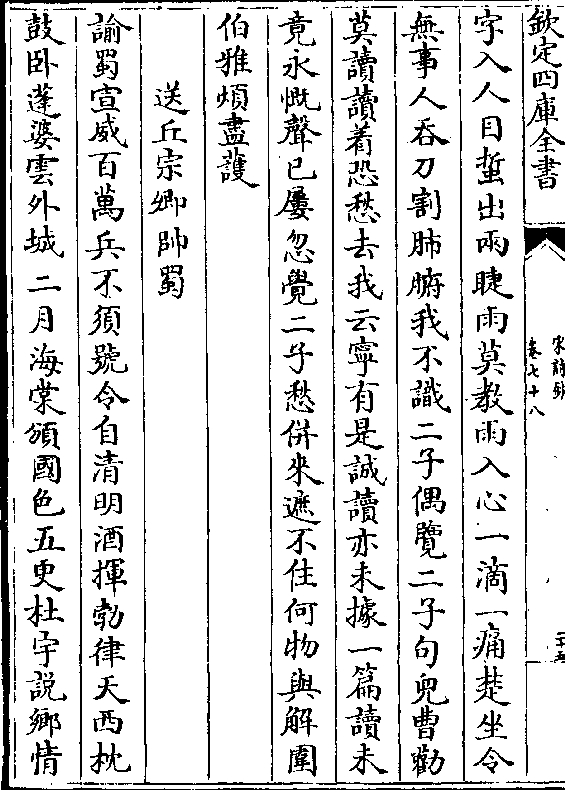 欽定四庫全書
宋詩鈔
卷七十八
二十五
字入人目蜇出兩睫雨莫教雨入心一滴一痛楚坐令
無事人吞刀割肺腑我不識二子偶覽二子句兒曹勸
莫讀讀着恐愁去我云寧有是誠讀亦未據一篇讀未
竟永慨聲已屢忽覺二子愁併來遮不住何物與解圍
伯雅煩盡護
送丘宗卿帥蜀
諭蜀宣威百萬兵不須號令自清明酒揮勃律天西枕
鼓卧蓬婆雲外城二月海棠傾國色五更杜宇說鄉情